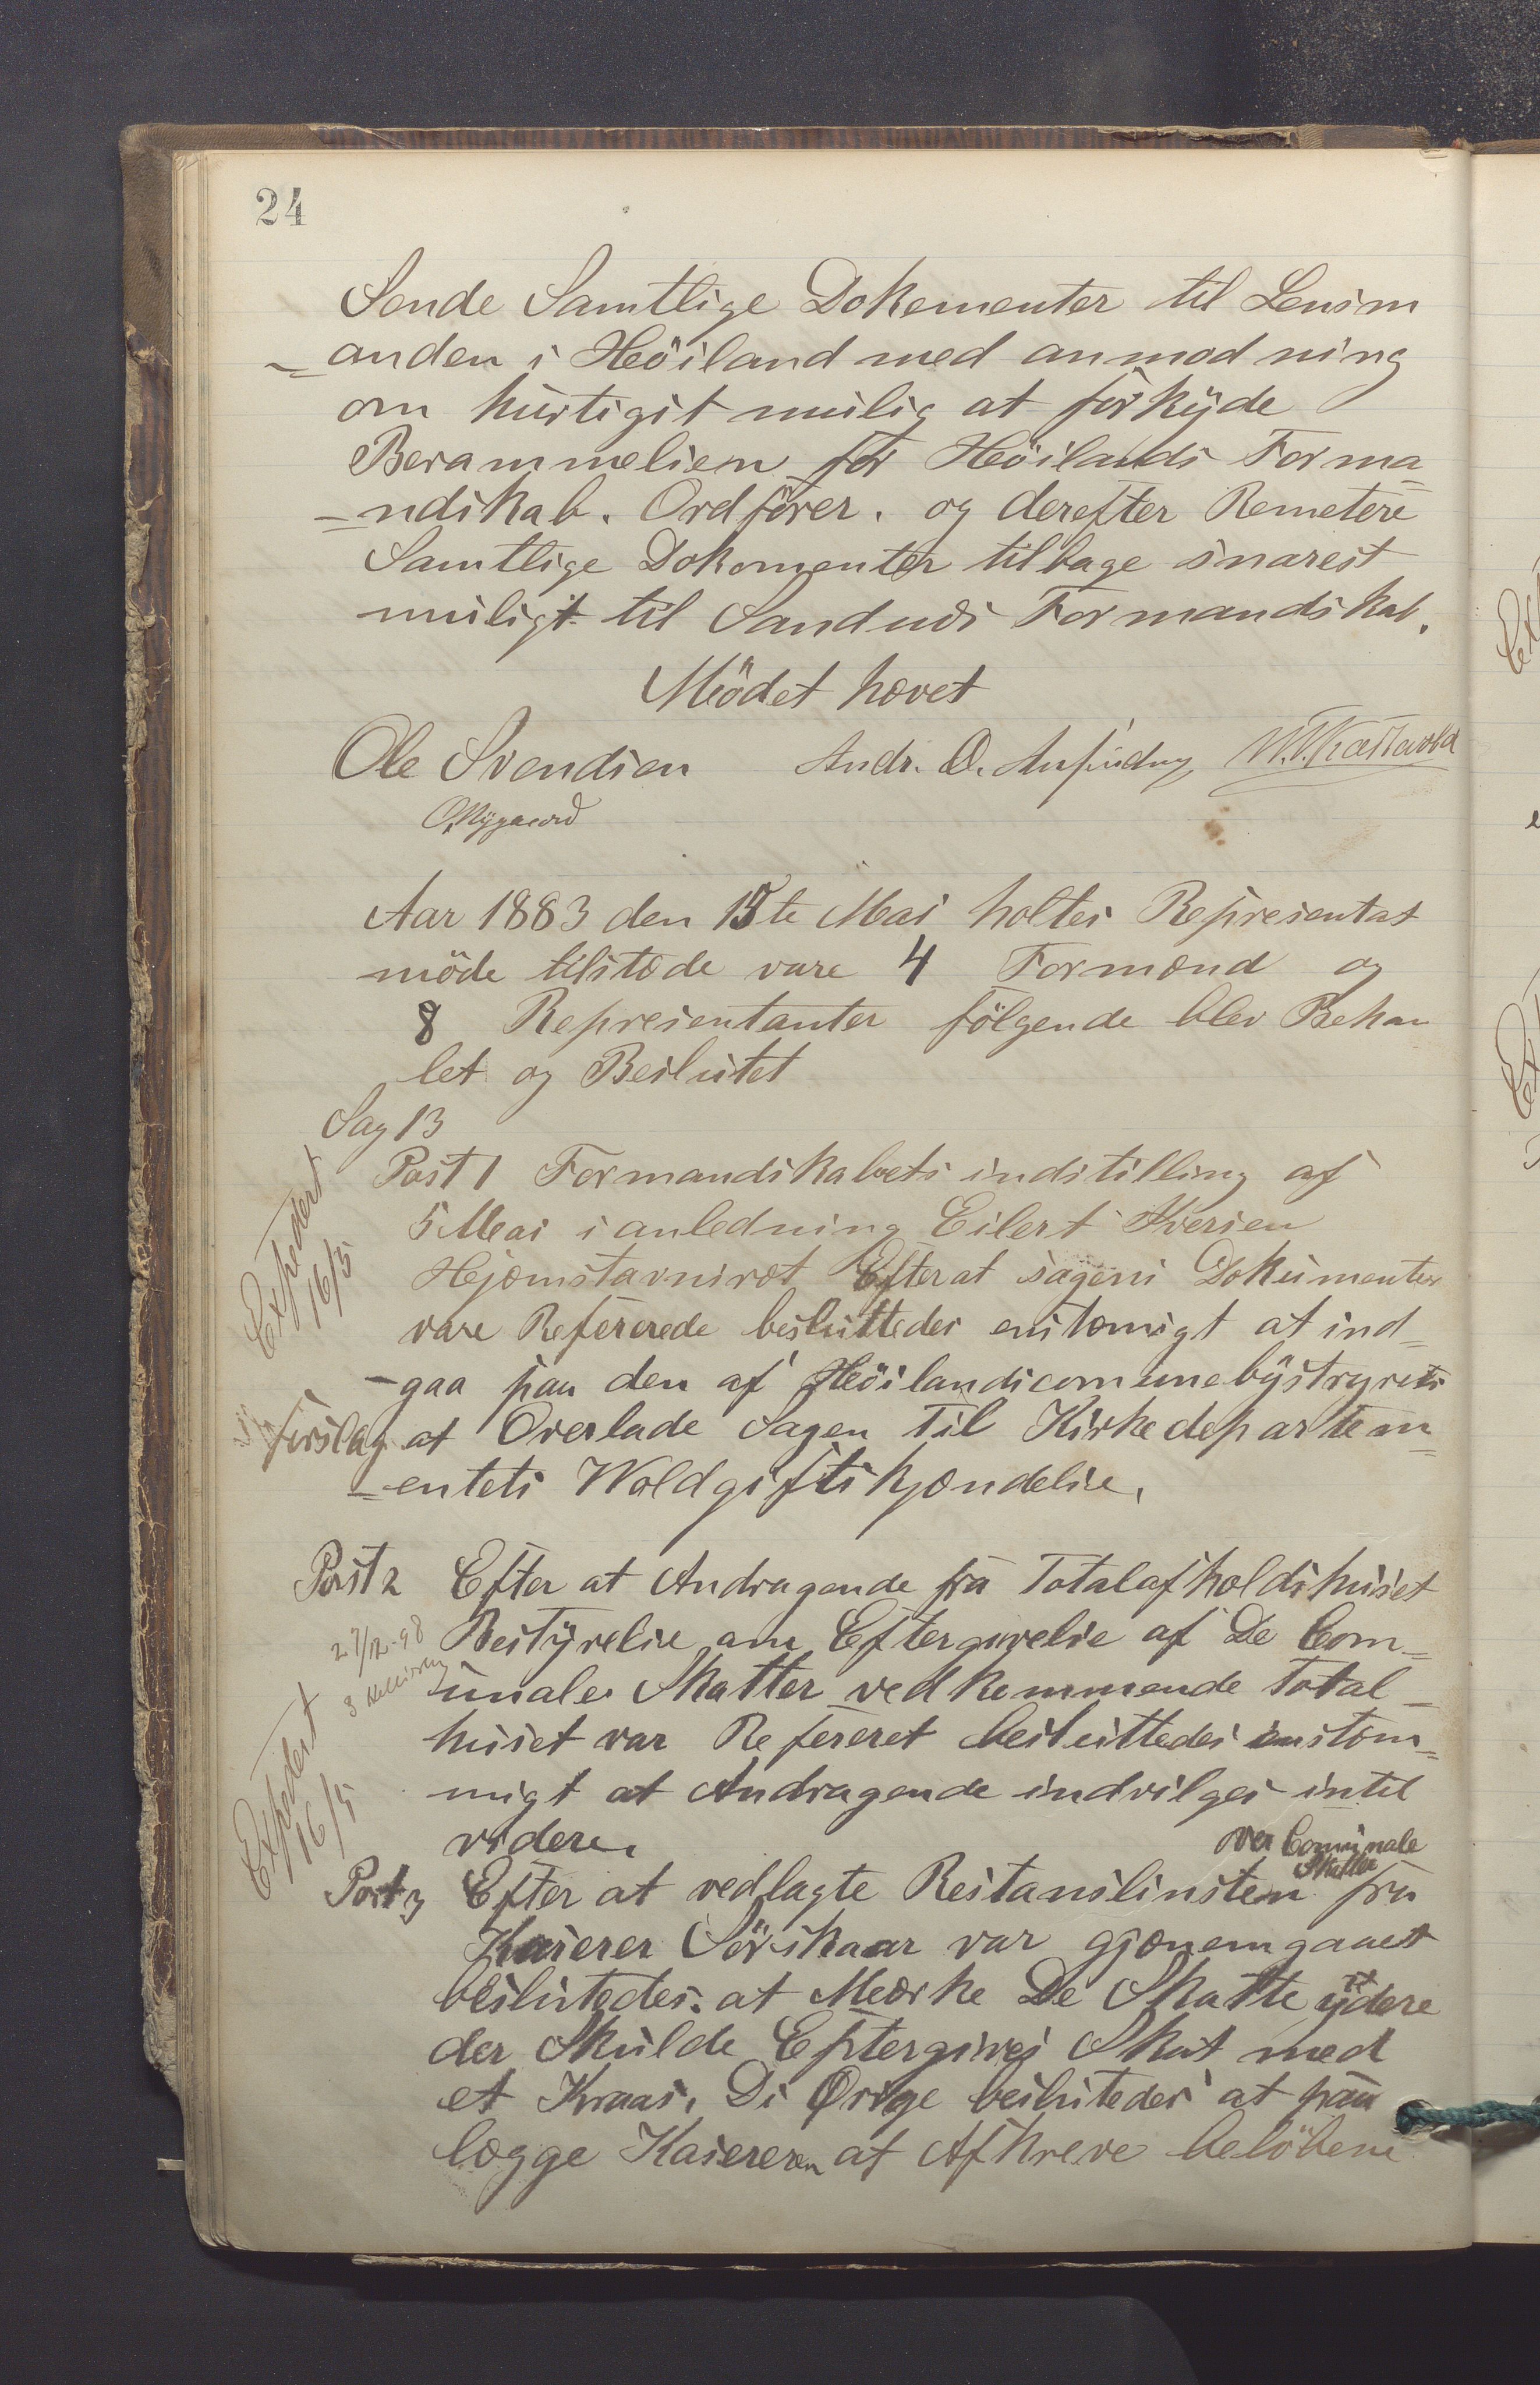 24
Sende Samtlige Dokementer til Lensm
anden i Höiland med anmodning
om hurtigst mulig at forkyde
Berammelsen for Höilands Forma
-ndskab. Ordförer. og derefter Remetere
Samtlige Dokomenter tilbage snarest
muligt til Sandnæs Formandskab.
Mödet hævet
Ole Svendsen Andr. O.
O. Nygaard
Aar 1883 den 15te Mai holtes Represientat
möde tilstæde vare 4 Formænd og
8 Represientanter fölgende blev Behan
let og Beslutet
Sag 13
Expedert
16/5
Post 1 Formandskabets indstilling af
5 Mai i anledning Eilert Iversen
Hjæmstavnsræt Efter at sagens Dokumenter
vare Refererede besluttedes enstæmigt at ind-
-gaa paa den af Höilandscomunebystryrets
forslag at Overlade Sagen Til Kirkedepartem
-entets Woldgiftskjændelse.
Post 2 Efter at Andragende fra Totalafholdshuset
27/12-98
Bestyrelse om Eftergivelse af De Com-
unale Skatter vedkommende Total-
huset var Refereret besluttedes enstæm-
migt at Andragende indvilges intil
Expidert
16/5
videre.
over Comunale
Skatter
Post 3 Efter at vedlagte Restanslinsten fra
Kaserer Sörskaar var gjænemgaaet
beslutedes. at Mærke De Skatte ydere
der Skulde Eftergives Skat med
et Kraas. Di Örige beslutedes at paa
lægge Kasereren at Afkreve belöbene